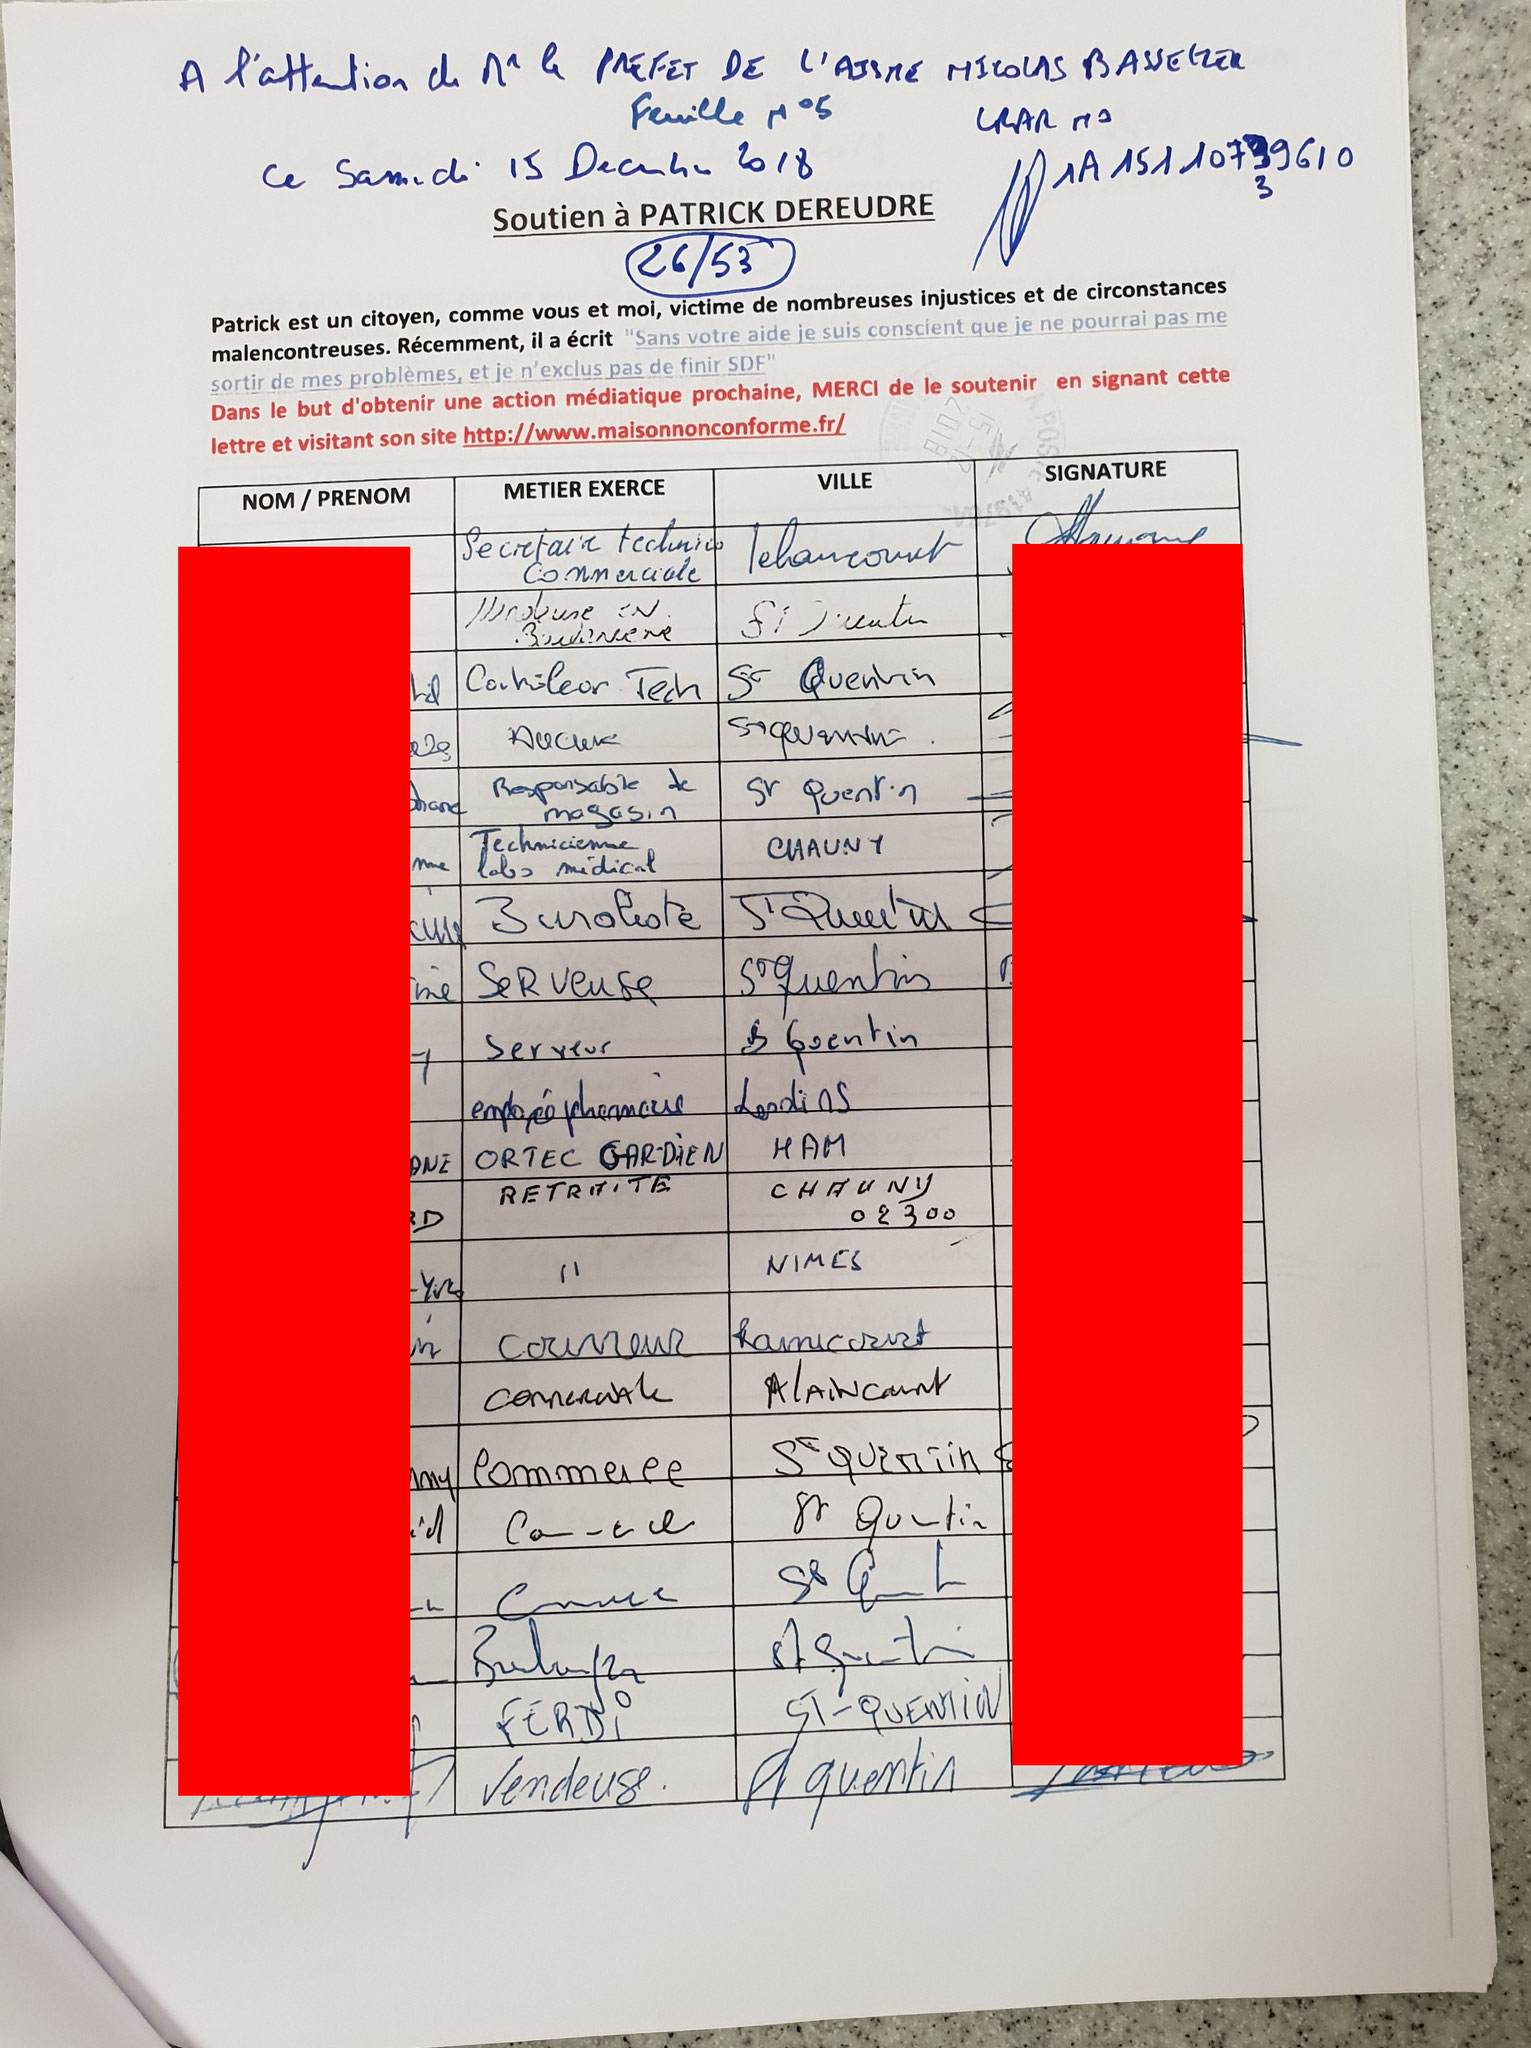 A l'attention de Mr le PREFET DE L'AISNE NICOLAS BASSELIER
Feuille N°5
LRAR N°
Ce Samedi 15 Decembre 2018
1A 151 107 39610
3
Soutien à PATRICK DEREUDRE
26/53
Patrick est un citoyen, comme vous et moi, victime de nombreuses injustices et de circonstances
malencontreuses. Récemment, il a écrit "Sans votre aide je suis conscient que je ne pourrai pas me
sortir de mes problèmes, et je n'exclus pas de finir SDF"
Dans le but d'obtenir une action médiatique prochaine, MERCI de le soutenir en signant cette
lettre et visitant son site http://www.maisonnonconforme.fr/
NOM / PRENOM METIER EXERCE VILLE SIGNATURE
Secretaire technico
Commerciale lehaucourt
EN St Quentin
Controleur Tech St Quentin
Aucune St Quentin
Responsable de
magasin St Quentin
Technicienne
labo médical CHAUNY
Buraliste St Quentin
SeRVeuse St Quentin
Serveur St Quentin
employé pharmacie
ANE ORTEC GARDIEN HAM
RD RETRAITE CHAUNY
02300
" NIMES
Couvreur Ramicourt
Commerciale Alaincourt
Commerce St Quentin
Commerce St Quentin
Commerce St Quentin
Boulanger St Quentin
ST-QUENTIN
Vendeuse. St quentin